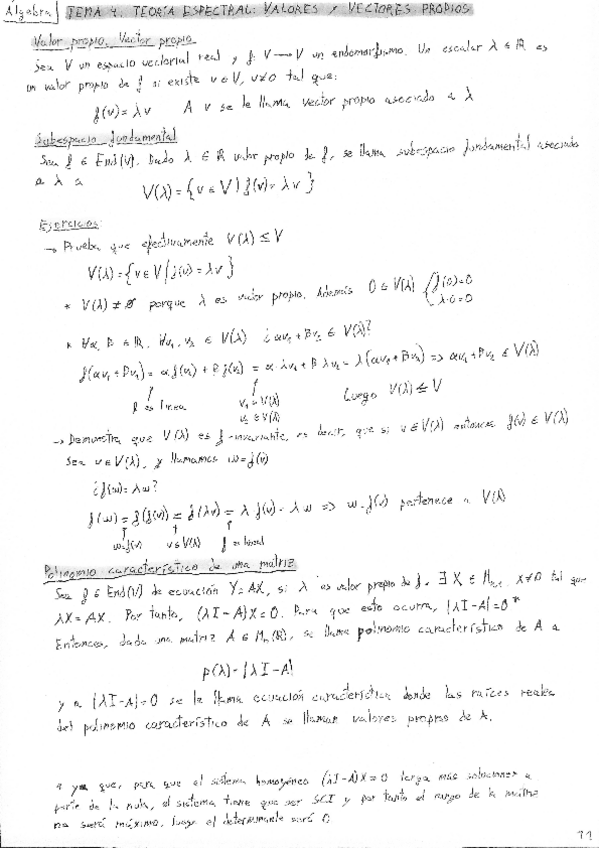 Álgebra
TEMA 4. TEORÍA ESPECTRAL: VALORES Y VECTORES PROPIOS
Valor propio. Vector propio
Sea V un espacio vectorial real y f: V → V un endomorfismo. Un escalar λ ∈ ℝ es
un valor propio de f si existe v ∈ V, v≠0 tal que:
f(v) = λv A v se le llama vector propio asociado a λ
Subespacio fundamental
Sea f ∈ End(V). Dado λ ∈ ℝ valor propio de f, se llama subespacio fundamental asociado
a λ a V(λ) = {v ∈ V | f(v) = λv}
Ejercicios:
→ Prueba que efectivamente V(λ) ≤ V
V(λ) = {v ∈ V / f(v) = λv}
* V(λ) ≠ ∅ porque λ es valor propio. Además 0 ∈ V(λ) { f(0)=0
λ·0=0
* ∀α, β ∈ ℝ, ∀v₁, v₂ ∈ V(λ) ¿αv₁ + βv₂ ∈ V(λ)?
f(αv₁ + βv₂) = α f(v₁) + β f(v₂) = α·λv₁ + β λv₂ = λ(αv₁ + βv₂) => αv₁ + βv₂ ∈ V(λ)
f es lineal
v₁ ∈ V(λ)
v₂ ∈ V(λ)
Luego V(λ) ≤ V
→ Demuestra que V(λ) es f-invariante, es decir, que si v ∈ V(λ) entonces f(v) ∈ V(λ)
Sea v ∈ V(λ), y llamamos w = f(v)
¿f(w) = λw?
f(w) = f(f(v)) = f(λv) = λ f(v) = λw => w = f(v) pertenece a V(λ)
w=f(v) v ∈ V(λ) f = lineal
Polinomio característico de una matriz
Sea f ∈ End(V) de ecuación Y=AX, si λ es valor propio de f, ∃ X ∈ X≠0 tal que
λX = AX. Por tanto, (λI-A)X=0. Para que esto ocurra, |λI-A|=0*
Entonces, dada una matriz A ∈ Mn(ℝ), se llama polinomio característico de A a
p(λ) = |λI-A|
y a |λI-A|=0 se le llama ecuación característica donde las raíces reales
del polinomio característico de A se llaman valores propios de A.
* ya que, para que el sistema homogéneo (λI-A)X=0 tenga más soluciones a
parte de la nula, el sistema tiene que ser SCI y por tanto el rango de la matriz
no será máximo, luego el determinante será 0